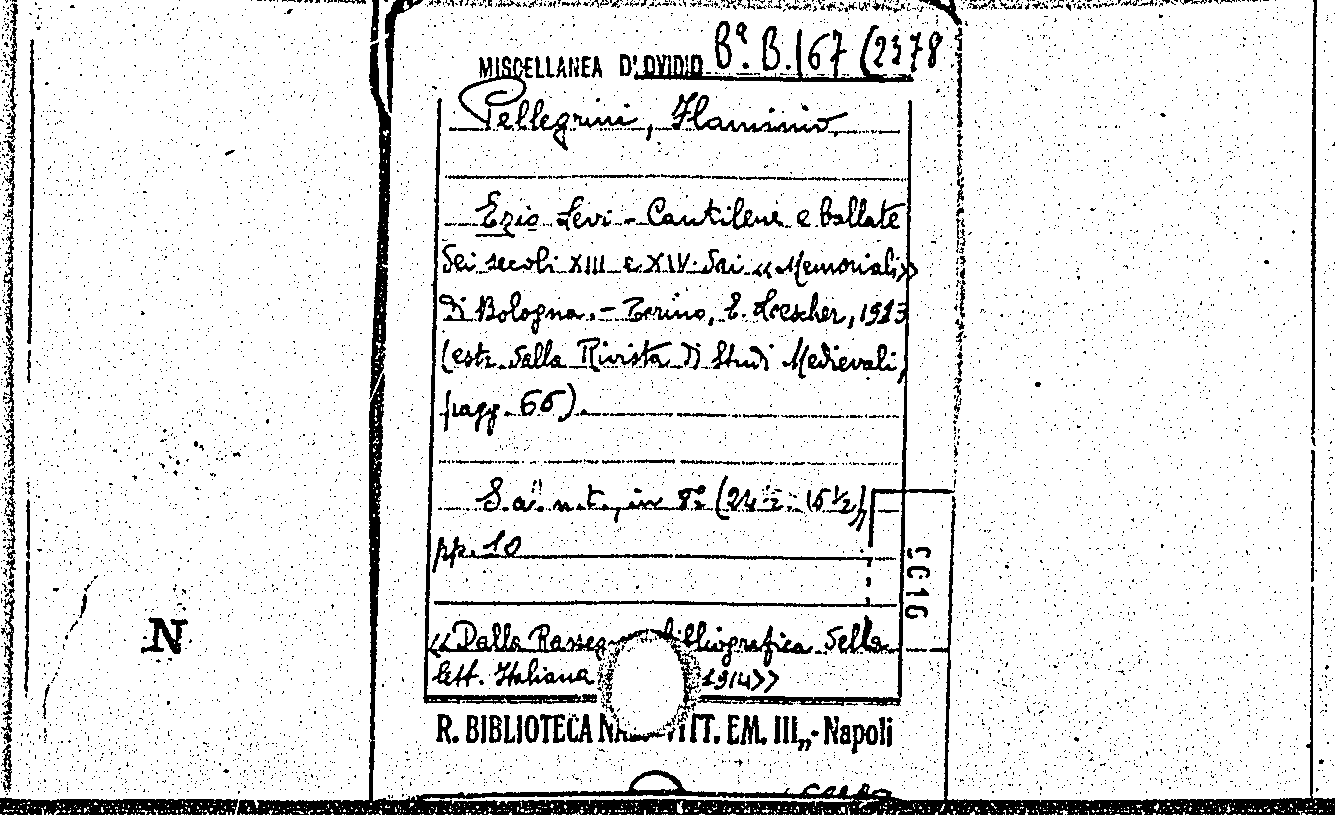 MISCELLANEA D'OVIDIO Bª. B. 167 (2378
Pellegrini, Flaminio
Ezio Levi - Cantilene e ballate
dei secoli XIII e XIV dai «Memoriali»
di Bologna. - Torino, E. Loescher, 1913
(estr. dalla Rivista di Studi Medievali,
pagg. 66).
S. a. n. t., in 8º (24 ½ . 16 ½),
pp. 10
«Dalla bibliografica della
lett. Italiana 1914»
R. BIBLIOTECA VITT. EM. III„ - Napoli
0016
N